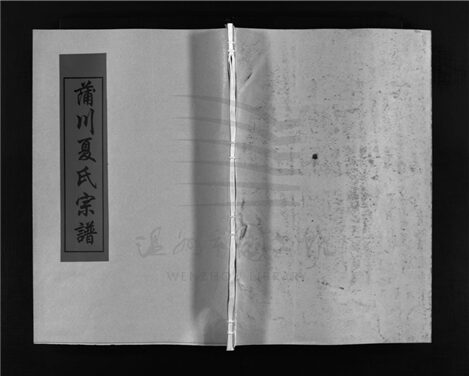 蒲川夏氏宗譜
温州市图书馆
WENZHOU LIBRARY